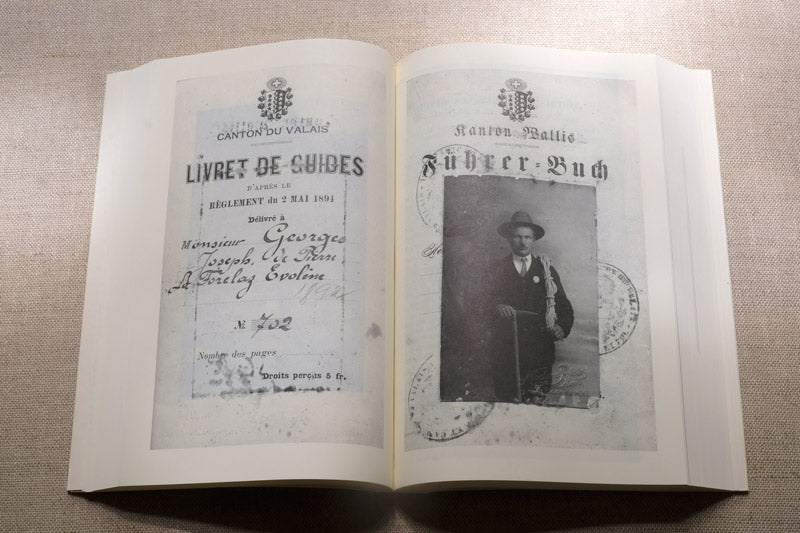 CANTON DU VALAIS
LIVRET DE GUIDES
D'APRÈS LE
RÈGLEMENT du 2 MAI 1894
Délivré à
Monsieur Georges
Joseph, de Pierre,
La Forclaz Evolène
Nº 702
Nombre des pages
Droits perçus 5 fr.
Kanton Wallis
Führer-Buch